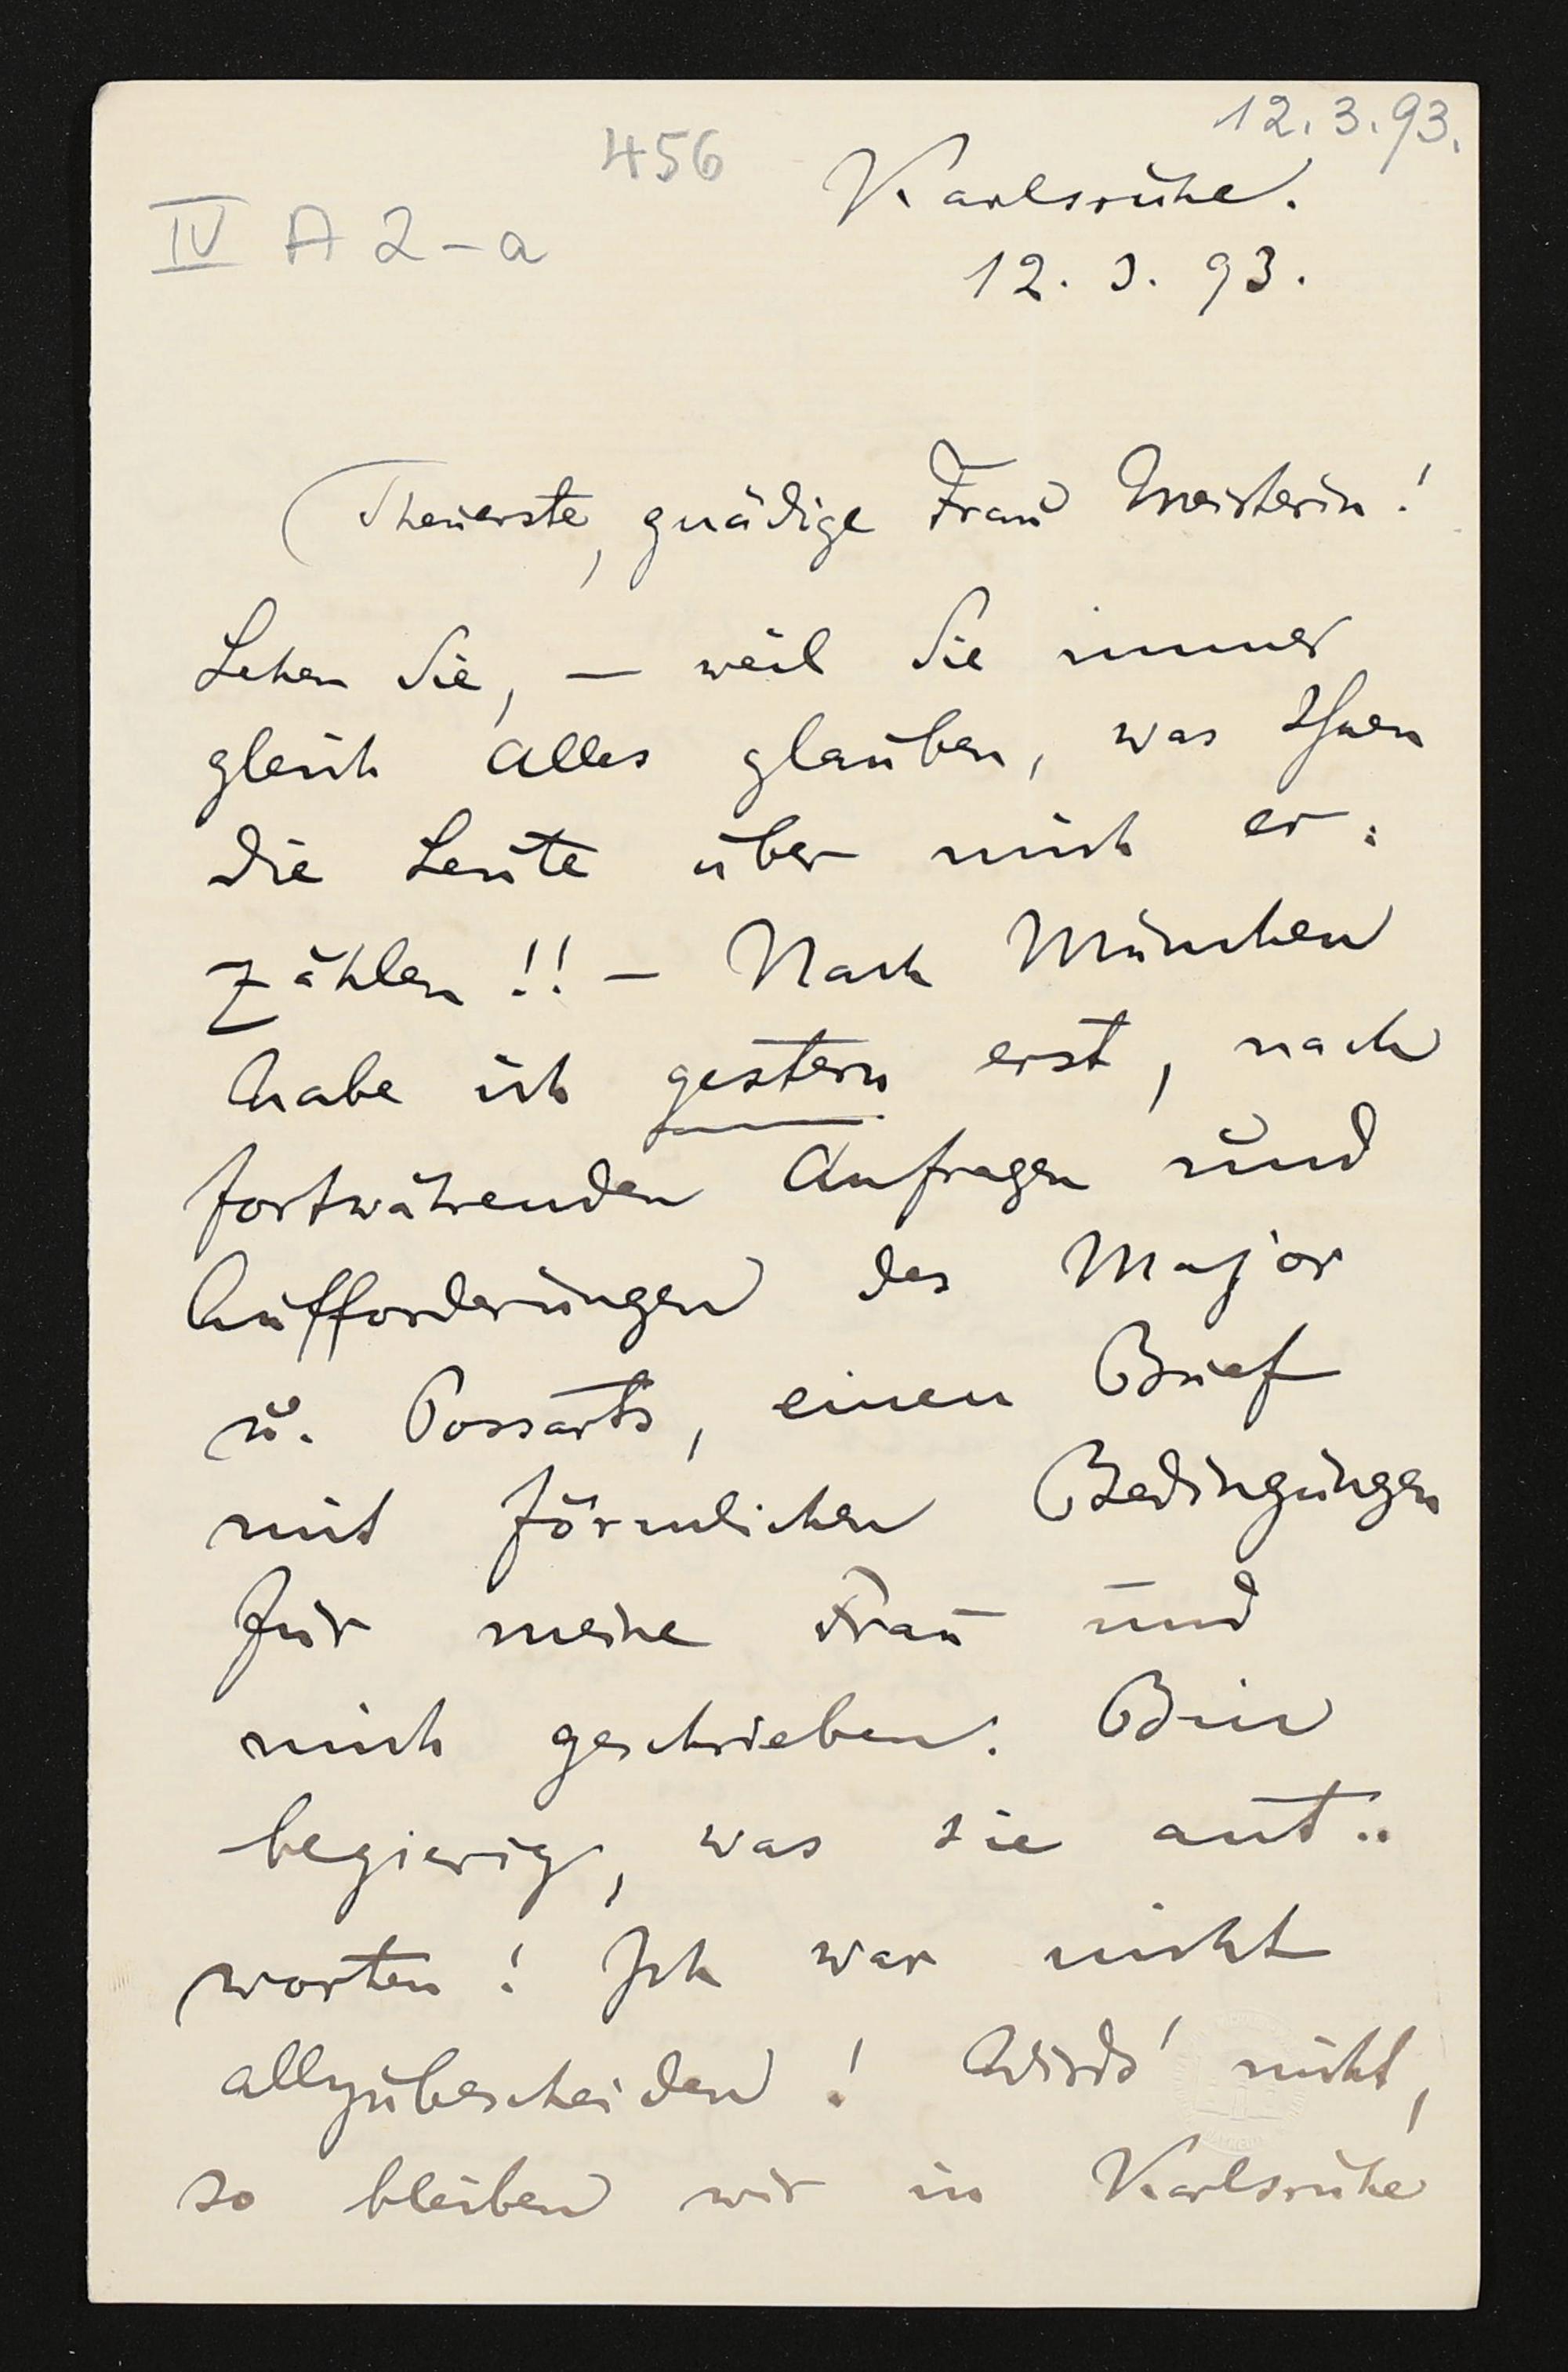 12.3.93.
456
Karlsruhe.
IV A 2-a
12. 3. 93.
Theuerste, gnädige Frau Meisterin!
Sehen Sie, — weil Sie immer
gleich Alles glauben, was Ihnen
die Leute über mich er:
zählen!! — Nach München
habe ich gestern erst, nach
fortwährenden Anfragen und
Aufforderungen des Major
u. Possarts, einen Brief
mit förmlichen Bedingungen
für meine Frau und
mich geschrieben. Bin
begierig, was sie ant..
worten! Ich war nicht
allzubescheiden! Wirds' nicht,
so bleiben wir in Karlsruhe